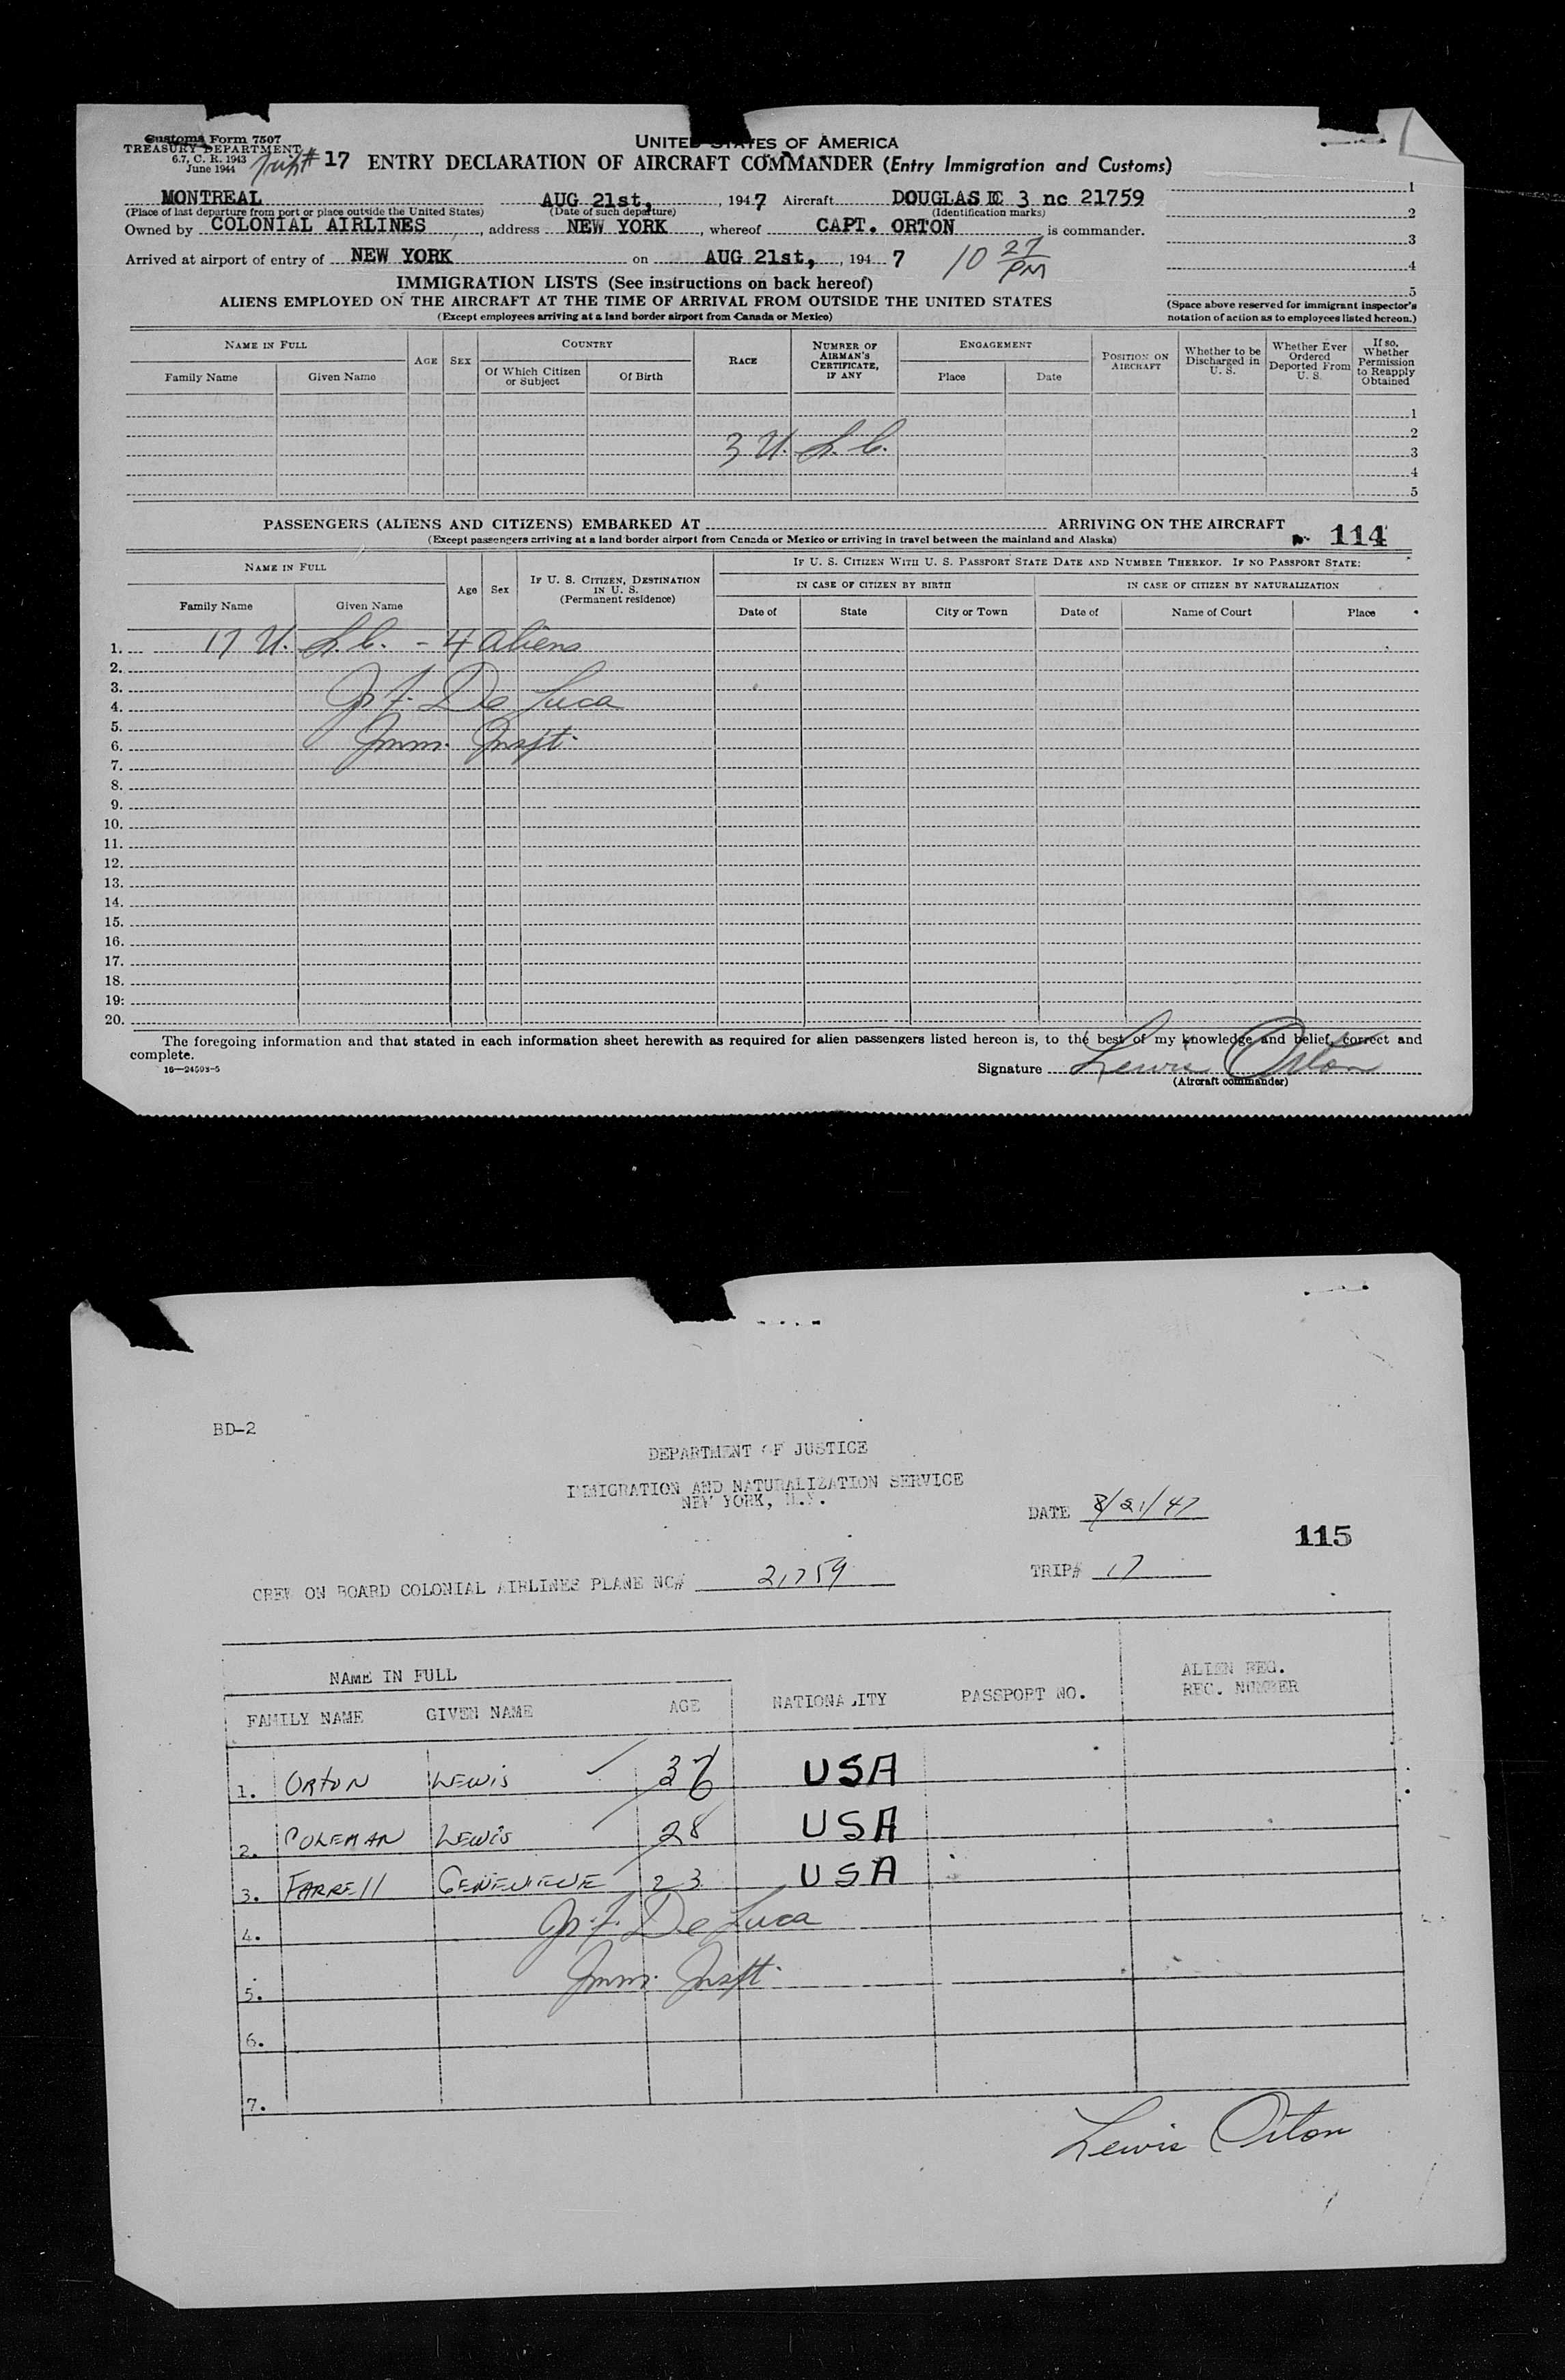 Customs Form 7507
TREASURY DEPARTMENT
6.7, C. R. 1943
June 1944
Trip # 17
UNITED STATES OF AMERICA
ENTRY DECLARATION OF AIRCRAFT COMMANDER (Entry Immigration and Customs)
MONTREAL AUG 21st, , 1947 Aircraft DOUGLAS DC 3 nc 21759
(Place of last departure from port or place outside the United States) (Date of such departure) (Identification marks)
Owned by COLONIAL AIRLINES , address NEW YORK , whereof CAPT. ORTON is commander.
Arrived at airport of entry of NEW YORK on AUG 21st, , 194 7 10 27 PM
1
2
3
4
5
(Space above reserved for immigrant inspector's notation of action as to employees listed hereon.)
IMMIGRATION LISTS (See instructions on back hereof)
ALIENS EMPLOYED ON THE AIRCRAFT AT THE TIME OF ARRIVAL FROM OUTSIDE THE UNITED STATES
(Except employees arriving at a land border airport from Canada or Mexico)
NAME IN FULL AGE SEX COUNTRY RACE NUMBER OF AIRMAN'S CERTIFICATE, IF ANY ENGAGEMENT POSITION ON AIRCRAFT Whether to be Discharged in U. S. Whether Ever Ordered Deported From U. S. If so, Whether Permission to Reapply Obtained
Family Name Given Name Of Which Citizen or Subject Of Birth Place Date
1
2
3 U. S. C. 3
4
5
PASSENGERS (ALIENS AND CITIZENS) EMBARKED AT ARRIVING ON THE AIRCRAFT
(Except passengers arriving at a land border airport from Canada or Mexico or arriving in travel between the mainland and Alaska)
114
NAME IN FULL Age Sex IF U. S. CITIZEN, DESTINATION IN U. S. (Permanent residence) IF U. S. CITIZEN WITH U. S. PASSPORT STATE DATE AND NUMBER THEREOF. IF NO PASSPORT STATE:
IN CASE OF CITIZEN BY BIRTH IN CASE OF CITIZEN BY NATURALIZATION
Family Name Given Name Date of State City or Town Date of Name of Court Place
1. 17 U. S. C. - 4 aliens
2.
3.
4. De Luca
5.
6. Imm. Inspt.
7.
8.
9.
10.
11.
12.
13.
14.
15.
16.
17.
18.
19.
20.
The foregoing information and that stated in each information sheet herewith as required for alien passengers listed hereon is, to the best of my knowledge and belief, correct and
complete.
16—24593-5
Signature Lewis Orton
(Aircraft commander)
BD-2
DEPARTMENT OF JUSTICE
IMMIGRATION AND NATURALIZATION SERVICE
NEW YORK, N.Y.
DATE 8/21/47
115
CREW ON BOARD COLONIAL AIRLINES PLANE NC# 21759 TRIP# 17
NAME IN FULL
FAMILY NAME GIVEN NAME AGE NATIONALITY PASSPORT NO. ALIEN REG. REC. NUMBER
1. ORTON LEWIS 36 USA
2. COLEMAN LEWIS 28 USA
3. FARRELL GENEVIEVE 23 USA
4. De Luca
5. Imm. Inspt.
6.
7.
Lewis Orton